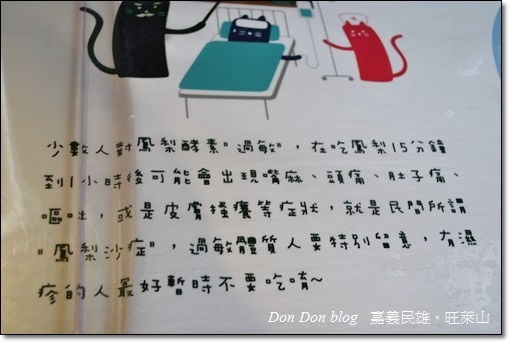 少數人對鳳梨酵素"過敏"，在吃鳳梨15分鐘
到1小時後可能會出現嘴麻、頭痛、肚子痛、
嘔吐，或是皮膚搔癢等症狀，就是民間所謂
"鳳梨沙症"，過敏體質人要特別留意，有濕
疹的人最好暫時不要吃唷~
Don Don blog 嘉義民雄。旺萊山